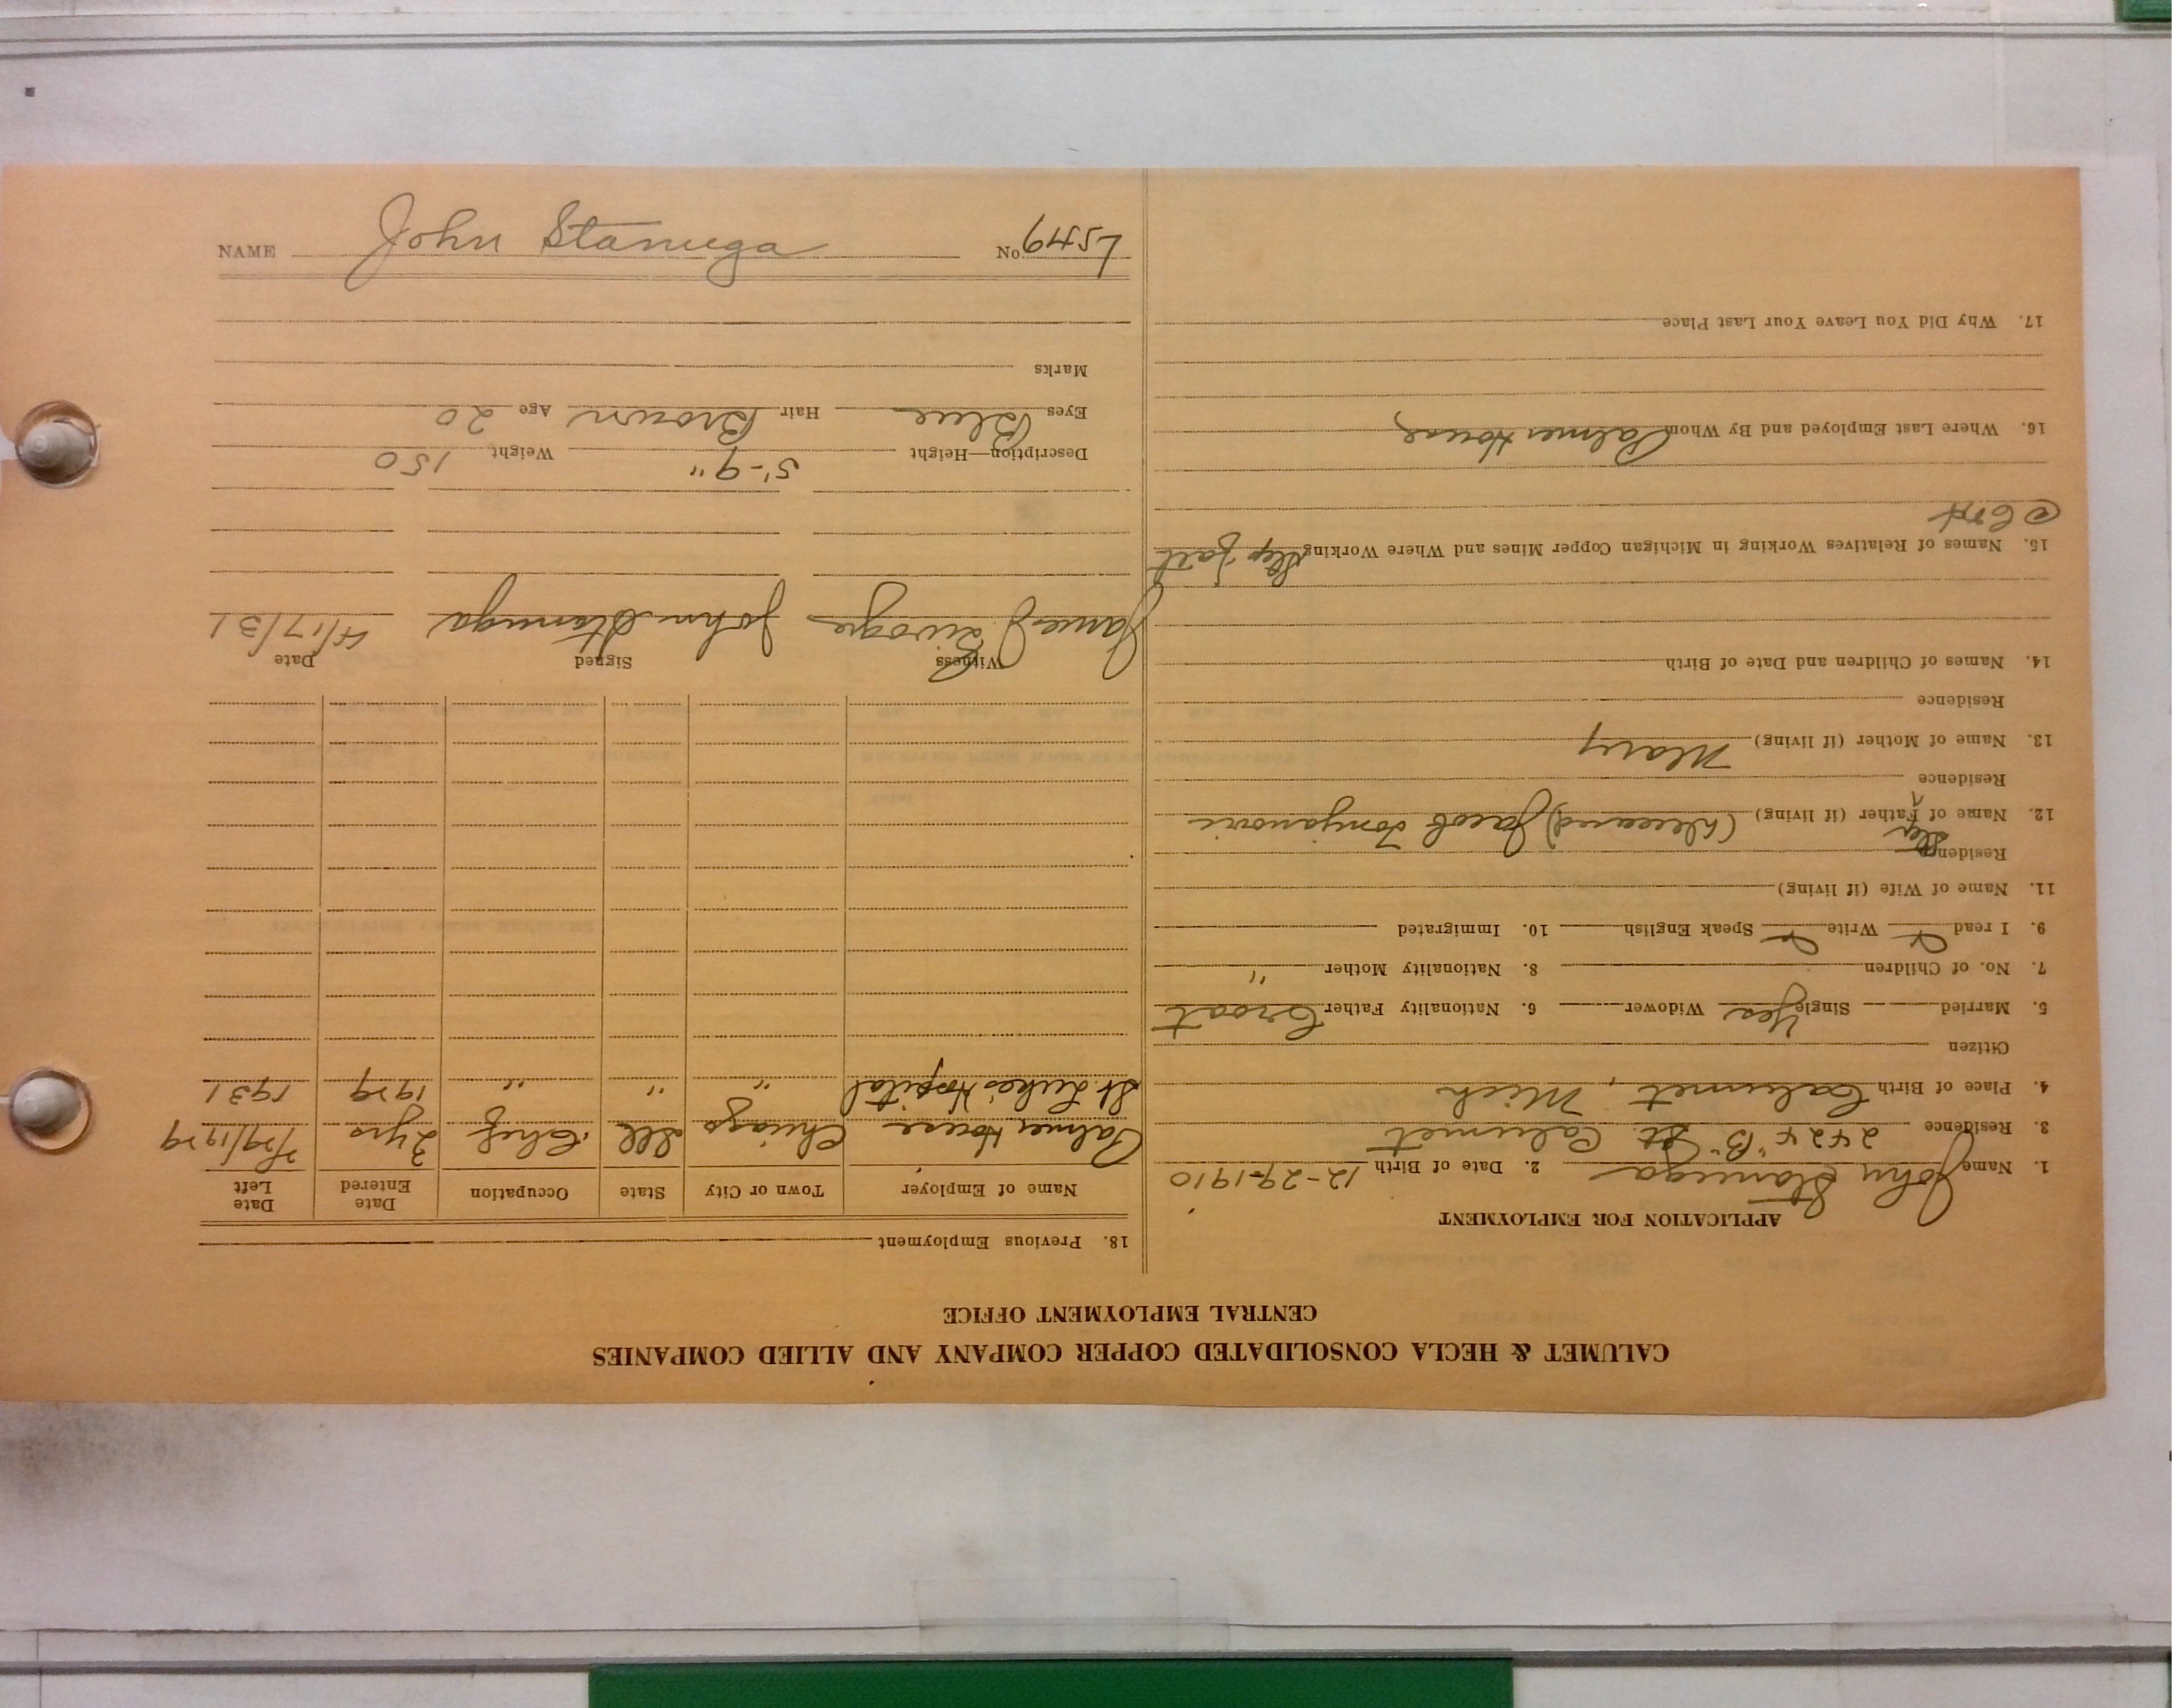 CALUMET & HECLA CONSOLIDATED COPPER COMPANY AND ALLIED COMPANIES
CENTRAL EMPLOYMENT OFFICE
APPLICATION FOR EMPLOYMENT
1. Name John Stanuga 2. Date of Birth 12-29-1910
3. Residence 2424 "B" St. Calumet
4. Place of Birth Calumet, Mich
Citizen
5. Married Single Yes Widower 6. Nationality Father Croat
7. No. of Children 8. Nationality Mother "
9. I read Write Speak English 10. Immigrated
11. Name of Wife (if living)
Residence
Step
12. Name of ^ Father (if living) (deceased) Jacob
Residence
13. Name of Mother (if living) Mary
Residence
14. Names of Children and Date of Birth
15. Names of Relatives Working in Michigan Copper Mines and Where Working Step fath
16. Where Last Employed and By Whom Palmer House
17. Why Did You Leave Your Last Place
18. Previous Employment
Name of Employer Town or City State Occupation Date Entered Date Left
Palmer House Chicago Ill Chef 2 yrs /1929
St. Luke's Hospital " " " 1929 1931
Witness Signed Date
James John Stanuga 4/17/31
Description—Height 5'-9" Weight 150
Eyes Blue Hair Brown Age 20
Marks
NAME John Stanuga No. L5449